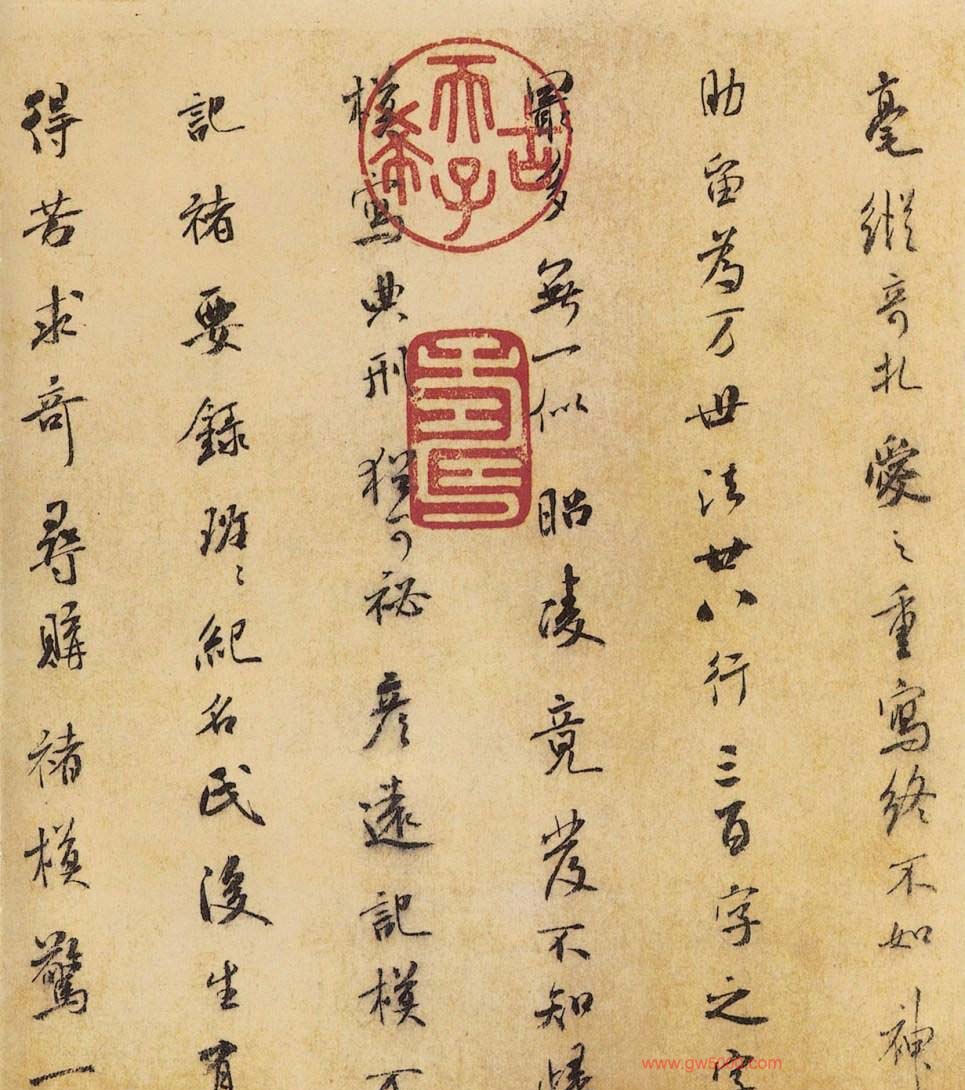 毫縱竒札愛之重寫終不如神
助留為万世法廿八行三百字之字
最多無一似昭陵竟發不知歸
模寫典刑猶可祕彥遠記模不
記褚要錄班〻紀名氏後生有
得苦求竒尋購褚模驚一
古希天子
壽
www.gw5000.com